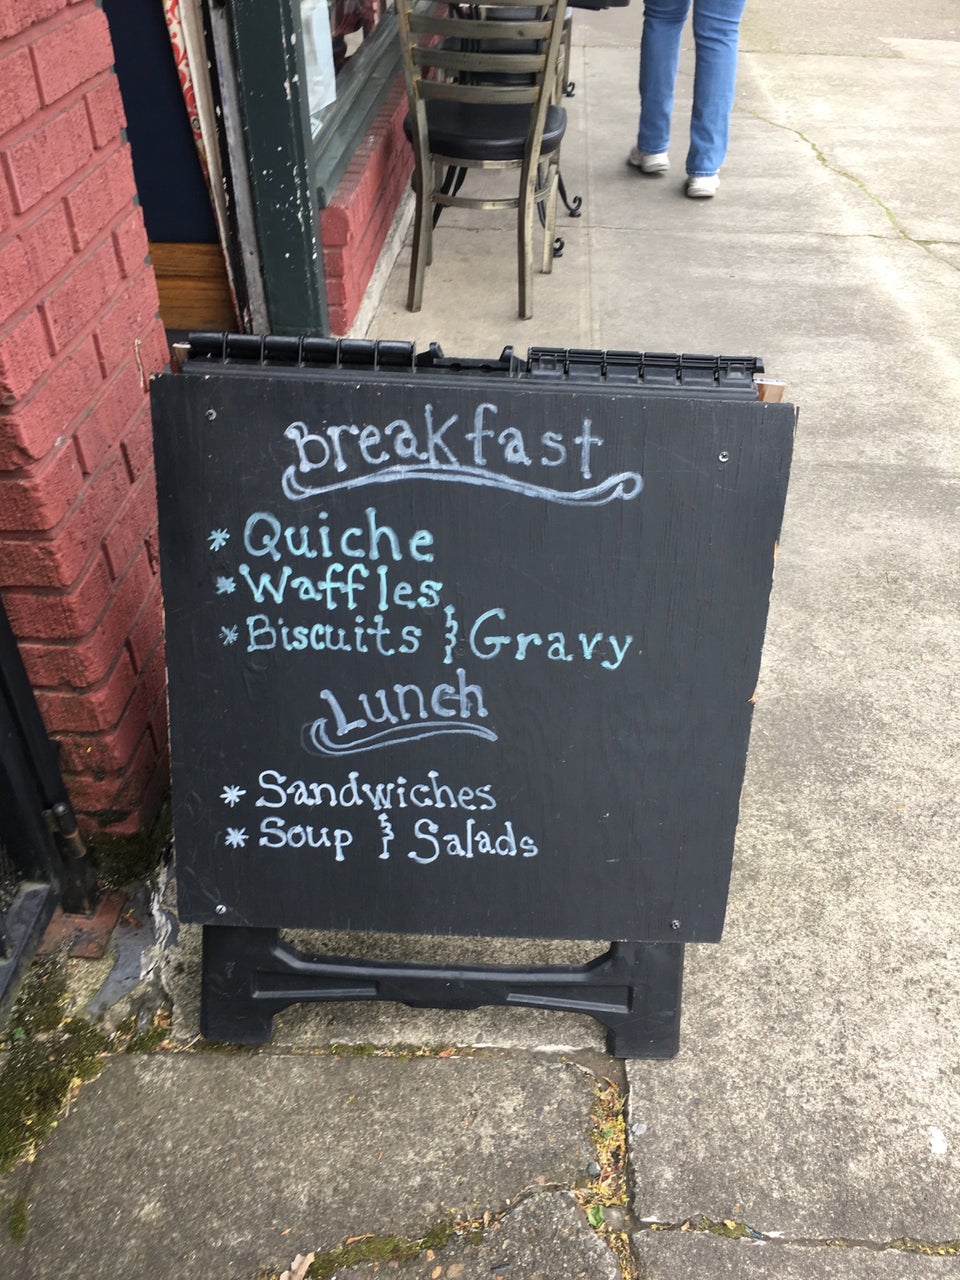 Breakfast
* Quiche
* Waffles
* Biscuits & Gravy
Lunch
* Sandwiches
* Soup & Salads